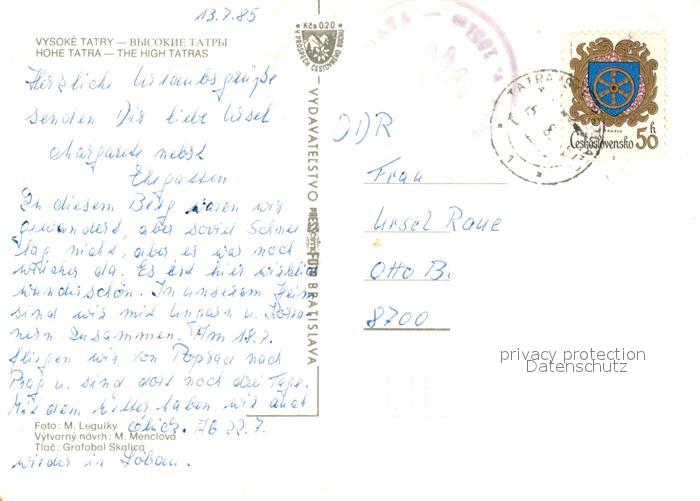 13.7.85
VYSOKÉ TATRY — ВЫСОКИЕ ТАТРЫ
HOHE TATRA — THE HIGH TATRAS
Herzliche Urlaubsgrüße
senden Dir liebe Ursel
Margarete nebst
Ehegatten
Zu diesem Berg waren wir
gewandert, aber soviel Schnee
lag nicht, aber es war noch
welcher da. Es ist hier wirklich
wunderschön. In unserem Heim
sind wir mit Ungarn u.
zusammen. Am 18.7.
fliegen wir von Poprad nach
Prag u. sind dort noch drei Tage.
Mit dem Wetter haben wir auch
Glück. Ab 22.7.
wieder in Löbau.
Foto: M. Legulky
Výtvarný návrh: M. Menclová
Tlač: Grafobal Skalica
Kčs 0.20
VYDAVATEĽSTVO
BRATISLAVA
DDR
Frau
Ursel Raue
Otto B.
8700
Československo 50 h
privacy protection
Datenschutz